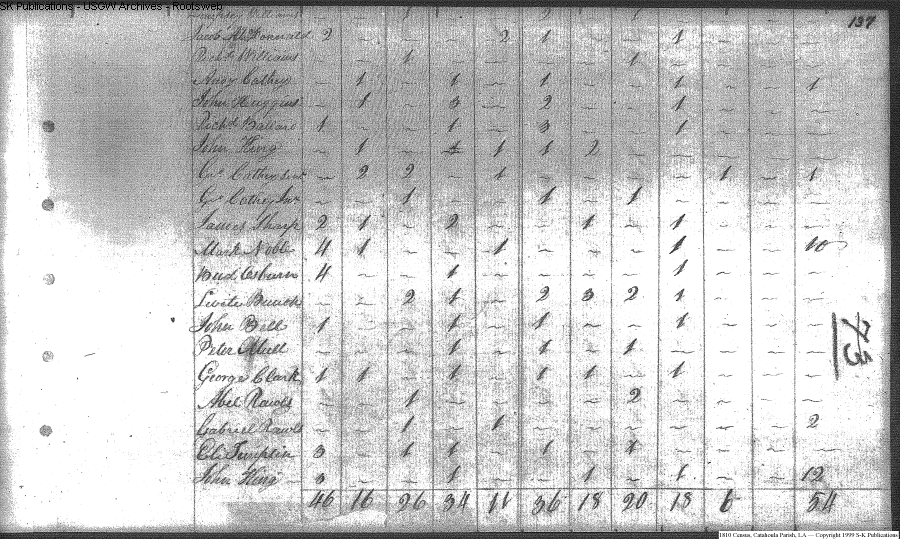 SK Publications - USGW Archives - Rootsweb
137
Williams 1 2 1
Jacob McDonnald 2 ~ ~ ~ 2 1 ~ ~ 1 ~ ~ ~
Richd. Williams ~ ~ 1 ~ ~ ~ ~ 1 ~ ~ ~ ~
Cathey ~ 1 ~ 1 ~ 1 ~ ~ 1 ~ ~ 1
John Huggins ~ 1 ~ 3 ~ 2 ~ ~ 1 ~ ~ ~
Richd. Ballard 1 ~ ~ 1 ~ 3 ~ ~ 1 ~ ~ ~
John King ~ 1 ~ 1 1 1 2 ~ ~ ~ ~ ~
Cathey Senr ~ 2 2 ~ 1 ~ ~ ~ ~ 1 ~ 1
Cathey Junr ~ ~ 1 ~ ~ 1 ~ 1 ~ ~ ~ ~
James Sharp 2 1 ~ 2 ~ ~ 1 ~ 1 ~ ~ ~
Mark Noble 4 1 ~ ~ 1 ~ ~ ~ 1 ~ ~ 10
Osburn 4 ~ ~ 1 ~ ~ ~ ~ 1 ~ ~ ~
Bunch ~ ~ 2 1 ~ 2 3 2 1 ~ ~ ~
John Bell 1 ~ ~ 1 ~ 1 ~ ~ 1 ~ ~ ~
Peter Mull ~ ~ ~ 1 ~ 1 ~ 1 ~ ~ ~ ~
George Clark 1 1 ~ 1 ~ 1 1 ~ 1 ~ ~ ~
Abel Rawls ~ ~ 1 ~ ~ ~ ~ 2 ~ ~ ~ ~
Gabriel Rawls ~ ~ 1 ~ 1 ~ ~ ~ ~ ~ ~ 2
Templin 3 ~ 1 1 ~ 1 ~ 1 ~ ~ ~ ~
John King 3 ~ ~ 1 ~ ~ 1 ~ 1 ~ ~ 12
46 16 26 34 11 36 18 20 18 6 54
73
1810 Census, Catahoula Parish, LA — Copyright 1999 S-K Publications